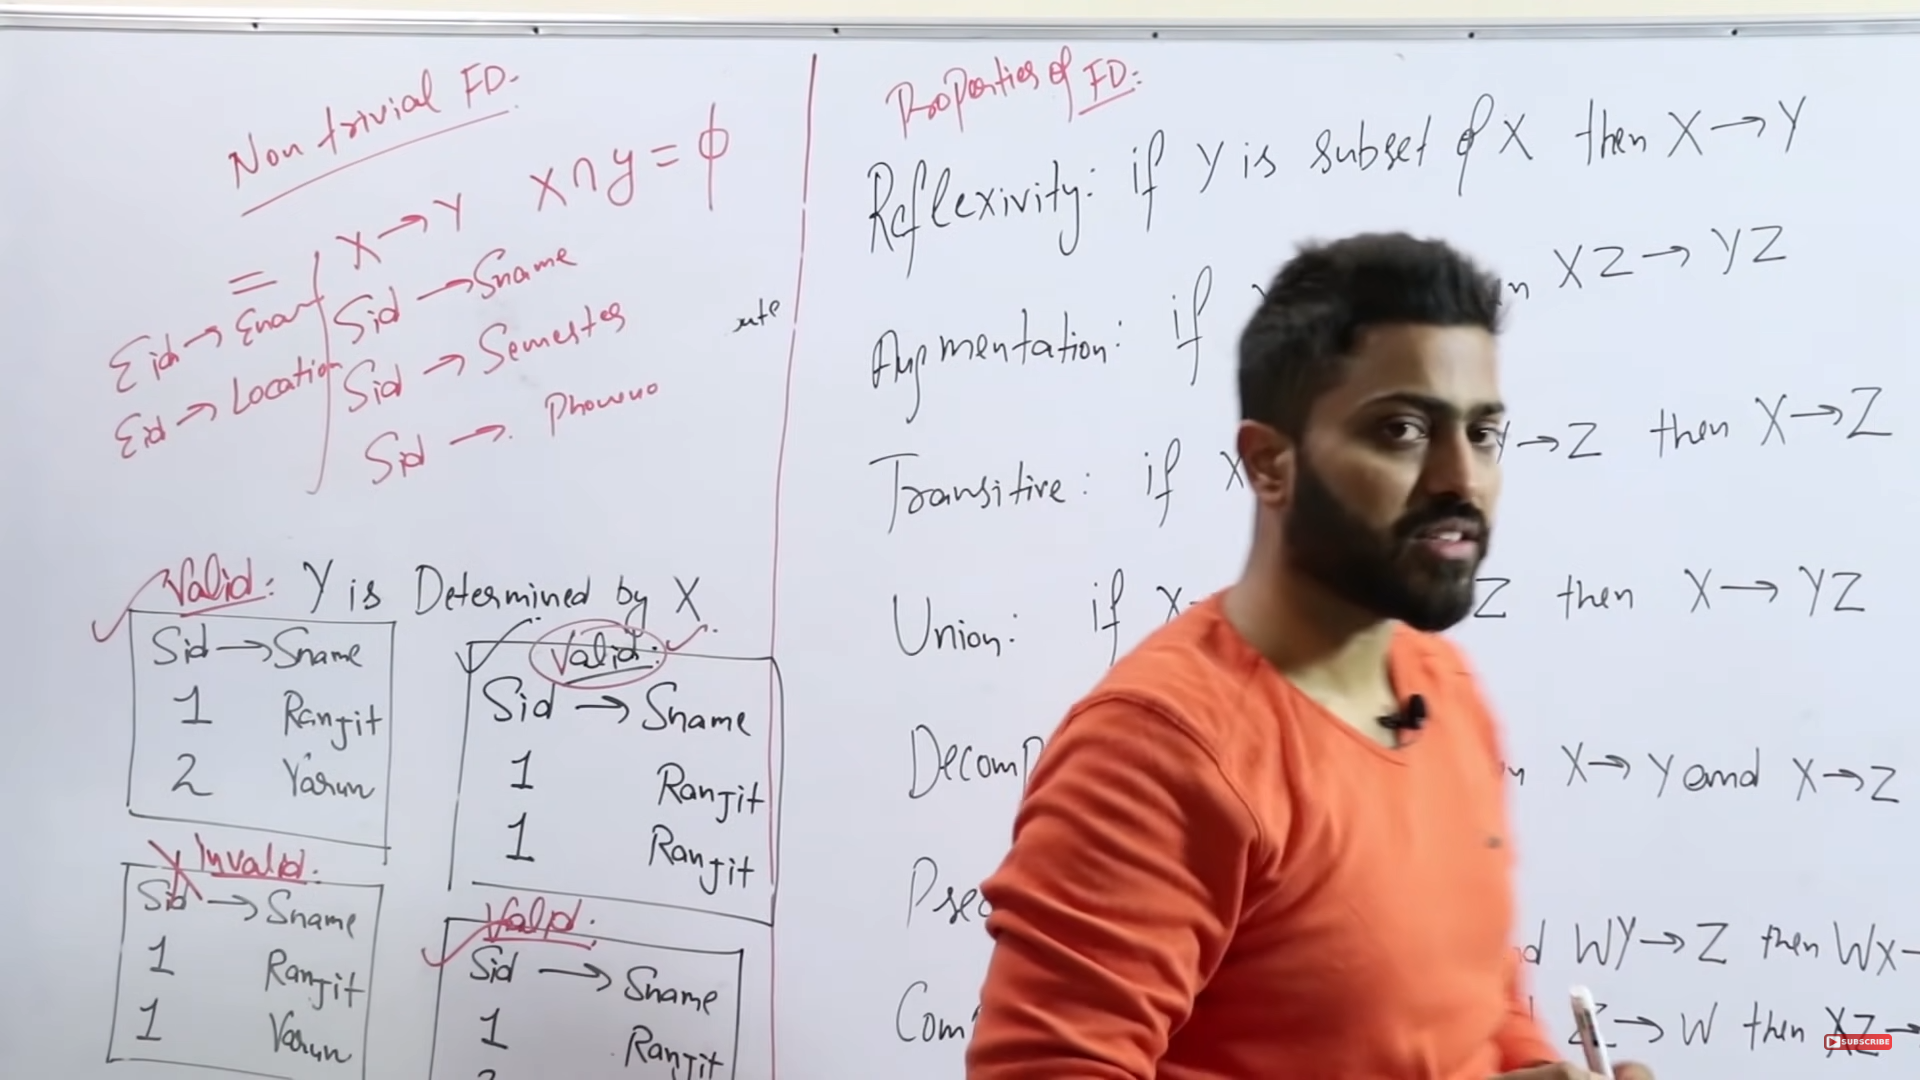 Non trivial FD:
X → Y X ∩ y = ϕ
=
Sid → Sname
Sid → Semester
Sid →
Eid →
Eid → Location
Valid: Y is Determined by X
Sid → Sname
1 Ranjit
2 Varun
Valid:
Sid → Sname
1 Ranjit
1 Ranjit
Invalid:
Sid → Sname
1 Ranjit
1 Varun
Valid:
Sid → Sname
1 Ranjit
Properties of FD:
Reflexivity: if Y is subset of X then X → Y
Augmentation: if XZ → YZ
Transitive: if X → Z then X → Z
Union: if X Z then X → YZ
X → Y and X → Z
WY → Z then WX
→ W then XZ →
SUBSCRIBE